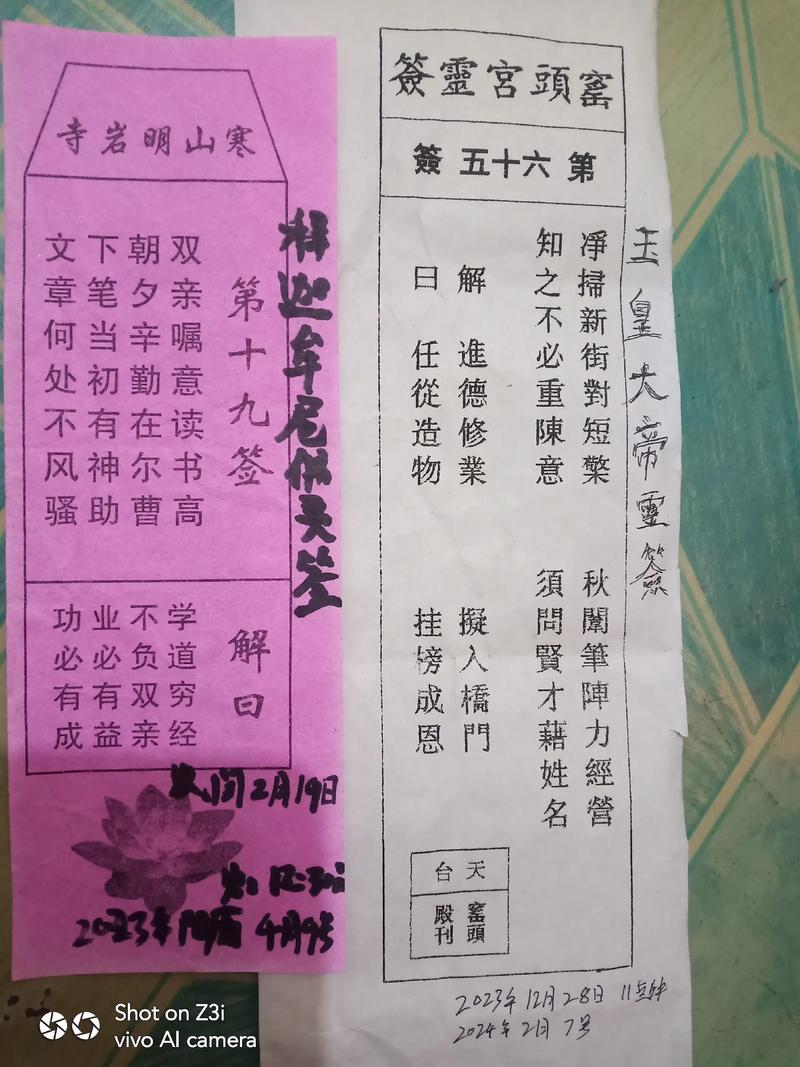 寒山明岩寺
第十九签
双亲嘱意读书高
朝夕辛勤在尔曹
下笔当初有神助
文章何处不风骚
解曰
学道穷经
不负双亲
业必有益
功必有成
释迦牟尼佛灵签
2月19日
2023年 4月9号
窰頭宮靈簽
第六十五簽
凈掃新街對短檠
秋闈筆陣力經營
知之不必重陳意
須問賢才藉姓名
解曰
進德修業
擬入橋門
任從造物
挂榜成恩
天台
窰頭殿刊
玉皇大帝靈簽
2023年12月28日 11点钟
2024年2月7号
Shot on Z3i
vivo AI camera